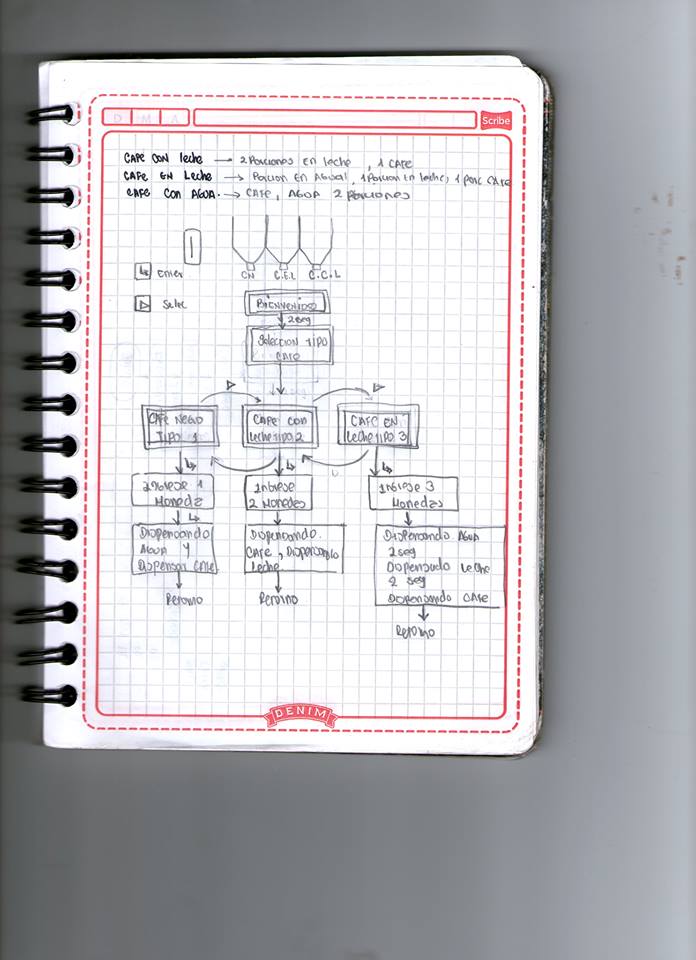 D M A
Scribe
CAFE CON leche → 2 Porciones En leche , 1 CAFE
CAFE EN Leche → Porcion En Agua1, 1 Porcion En leche, 1 porc CAFE
CAFE CON AGUA. → CAFE, AGUA 2 porciones
CN C.E.L C.C.L
Enter
Selec
BIENVENIDO
2 seg
Seleccion TIPO
CAFE
CAFE NEGRO
TIPO 1
CAFE CON
Leche TIPO 2
CAFE EN
Leche TIPO 3
Ingrese 1
Moneda
Ingrese
2 Monedas
Ingrese 3
Monedas
Dispensando
AGUA Y
Dispensa CAFE
Dispensando
CAFE, Dispensando
Leche
Dispensando AGUA
2 seg
Dispensando Leche
2 seg
Dispensando CAFE
Retorno
Retorno
Retorno
DENIM